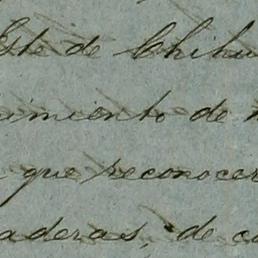 Este de Chihu
imiento de
que reconocer
aderas, de ca